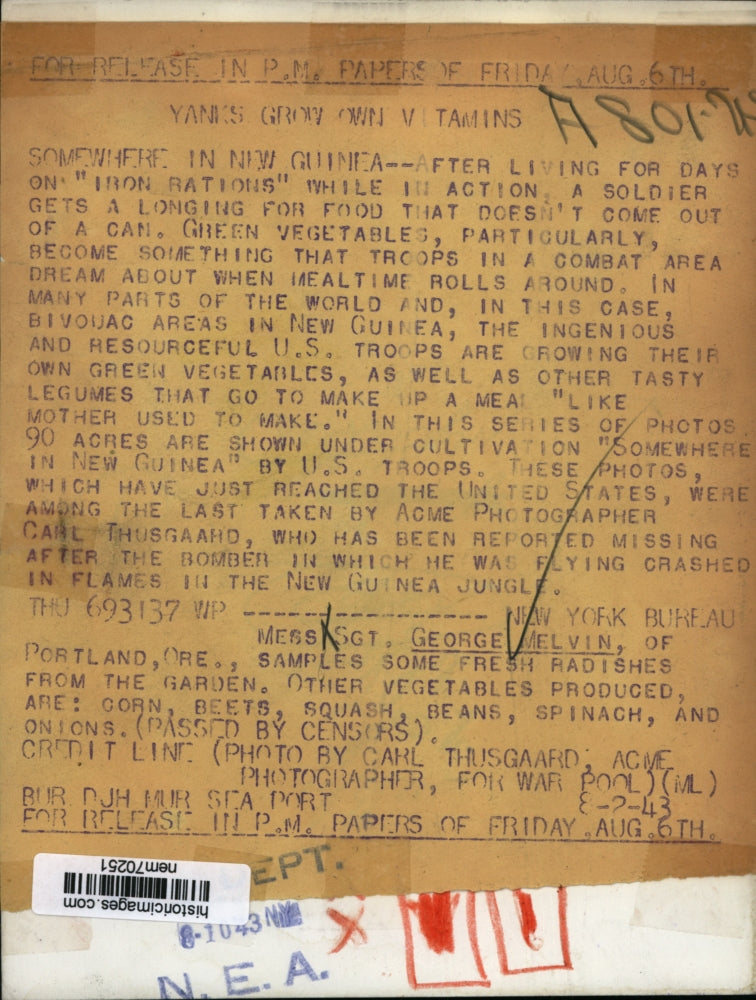 FOR RELEASE IN P.M. PAPERS OF FRIDAY, AUG. 6TH.
YANKS GROW OWN VITAMINS
SOMEWHERE IN NEW GUINEA--AFTER LIVING FOR DAYS
ON "IRON RATIONS" WHILE IN ACTION, A SOLDIER
GETS A LONGING FOR FOOD THAT DOESN'T COME OUT
OF A CAN. GREEN VEGETABLES, PARTICULARLY,
BECOME SOMETHING THAT TROOPS IN A COMBAT AREA
DREAM ABOUT WHEN MEALTIME ROLLS AROUND. IN
MANY PARTS OF THE WORLD AND, IN THIS CASE,
BIVOUAC AREAS IN NEW GUINEA, THE INGENIOUS
AND RESOURCEFUL U.S. TROOPS ARE GROWING THEIR
OWN GREEN VEGETABLES, AS WELL AS OTHER TASTY
LEGUMES THAT GO TO MAKE UP A MEAL "LIKE
MOTHER USED TO MAKE." IN THIS SERIES OF PHOTOS
90 ACRES ARE SHOWN UNDER CULTIVATION "SOMEWHERE
IN NEW GUINEA" BY U.S. TROOPS. THESE PHOTOS,
WHICH HAVE JUST REACHED THE UNITED STATES, WERE
AMONG THE LAST TAKEN BY ACME PHOTOGRAPHER
CARL THUSGAARD, WHO HAS BEEN REPORTED MISSING
AFTER THE BOMBER IN WHICH HE WAS FLYING CRASHED
IN FLAMES IN THE NEW GUINEA JUNGLE.
THU 693137 WP ----------------- NEW YORK BUREAU
MESS SGT. GEORGE MELVIN, OF
PORTLAND, ORE., SAMPLES SOME FRESH RADISHES
FROM THE GARDEN. OTHER VEGETABLES PRODUCED,
ARE: CORN, BEETS, SQUASH, BEANS, SPINACH, AND
ONIONS. (PASSED BY CENSORS).
CREDIT LINE (PHOTO BY CARL THUSGAARD, ACME
PHOTOGRAPHER, FOR WAR POOL) (ML)
BUR DJH MUR SEA PORT 8-2-43
FOR RELEASE IN P.M. PAPERS OF FRIDAY, AUG. 6TH.
historicimages.com
nem70251
EPT.
8-1043 NY
N.E.A.